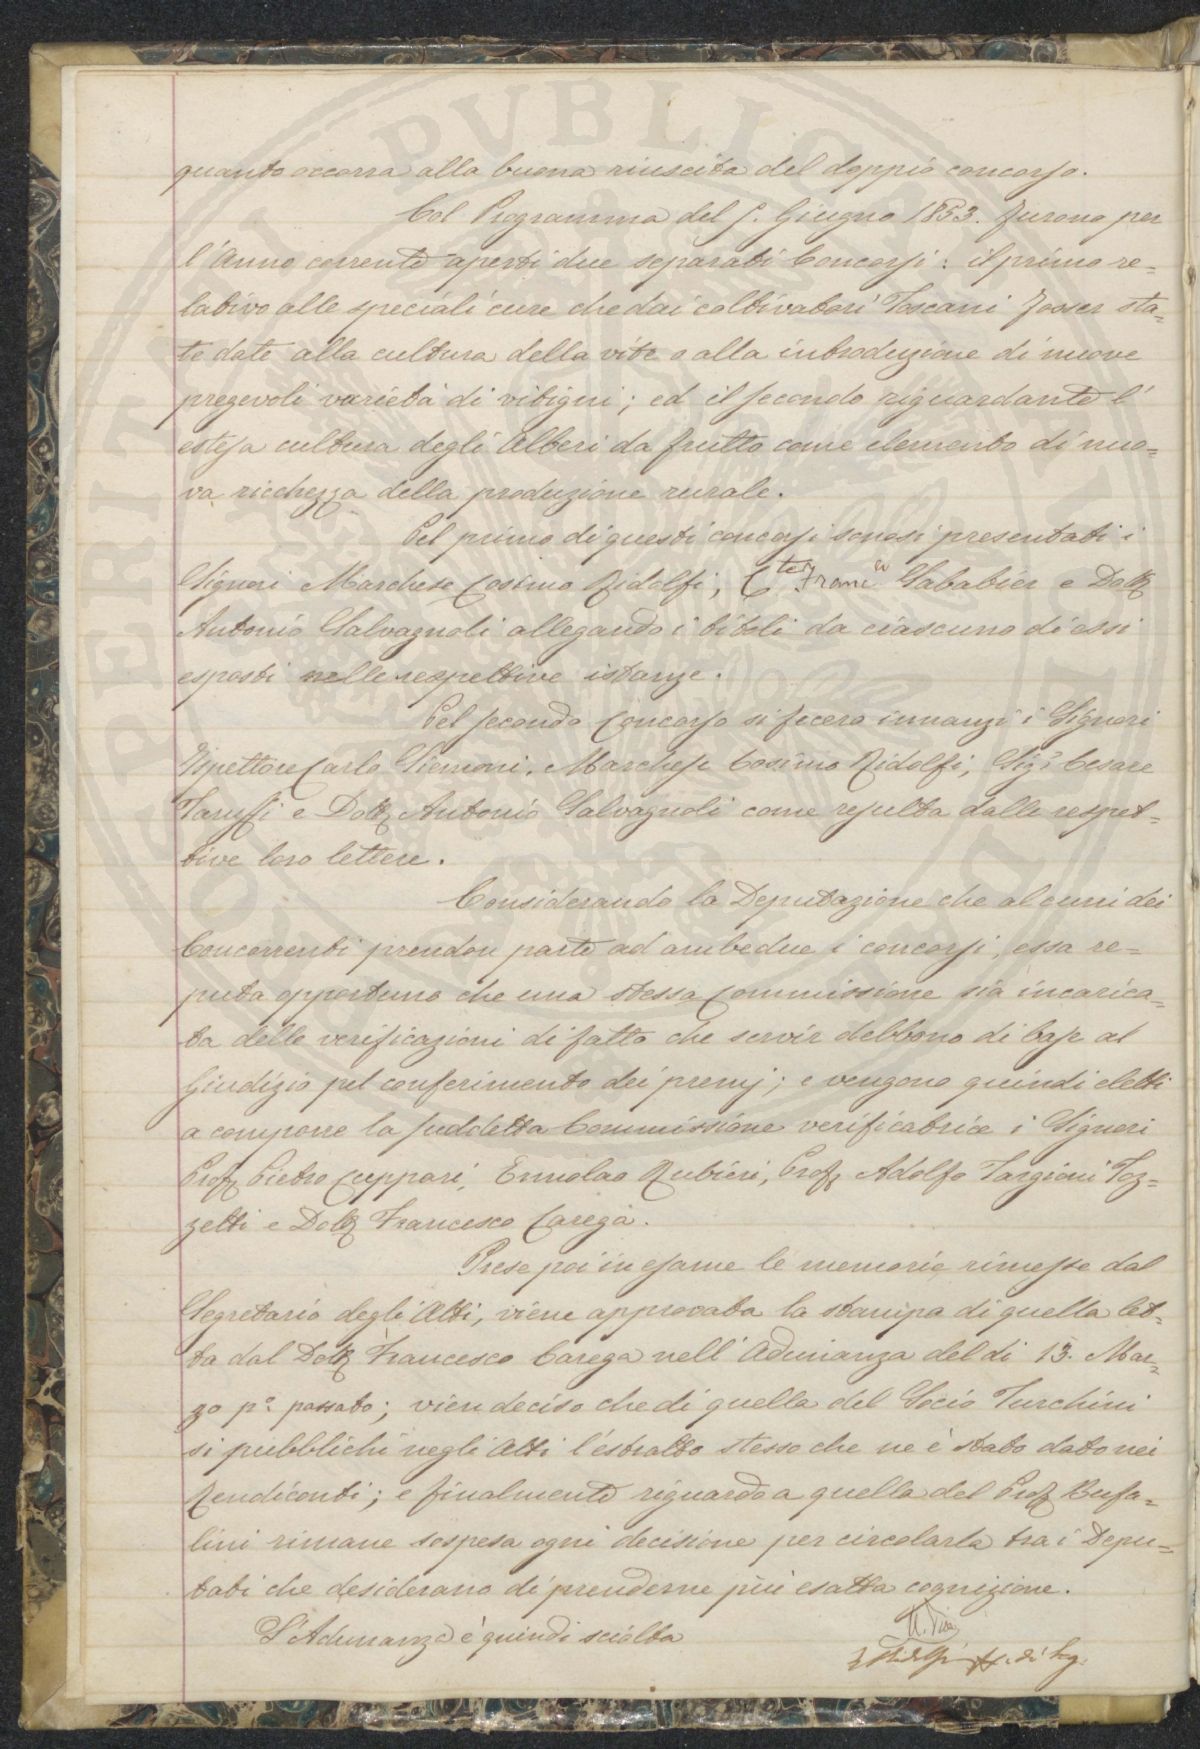 quanto occorra alla buona riuscita del doppio concorso.
Col Programma del 5. Giugno 1853. furono per
l'Anno corrente aperti due separati Concorsi: il primo re=
lativo alle speciali cure che dai coltivatori Toscani fosser sta=
te date alla cultura della vite o alla introduzione di nuove
pregevoli varietà di vitigni; ed il secondo riguardante l'
estesa cultura degli Alberi da frutto come elemento di nuo=
va ricchezza della produzione rurale.
Pel primo di questi concorsi sonosi presentati i
Signori Marchese Cosimo Ridolfi, Sababier e Dott.
Antonio Salvagnoli allegando i titoli da ciascuno di essi
esposti nelle respettive istanze.
Pel secondo Concorso si fecero innanzi i Signori
Ispettore Carlo Siemoni, Marchese Cosimo Ridolfi, Sigr. Cesare
Taruffi e Dott. Antonio Salvagnoli come resulta dalle respet=
tive loro lettere.
Considerando la Deputazione che alcuni dei
Concorrenti prendon parte ad ambedue i concorsi, essa re=
puta opportuno che una stessa Commissione sia incarica=
ta delle verificazioni di fatto che servir debbono di base al
Giudizio pel conferimento dei premj; e vengono quindi eletti
a comporre la suddetta Commissione verificatrice i Signori
Prof. Pietro Cuppari, Ermolao Rubieri, Prof. Adolfo Targioni Toz=
zetti e Dott. Francesco Carega.
Prese poi in esame le memorie rimesse dal
Segretario degli Atti, viene approvata la stampa di quella let=
ta dal Dott. Francesco Carega nell'Adunanza del dì 13. Mar=
zo po. passato; vien deciso che di quella del Socio Turchini
si pubblichi negli Atti l'estratto stesso che ne è stato dato nei
Rendiconti; e finalmente riguardo a quella del Prof. Bufa=
lini rimane sospesa ogni decisione per circolarla tra i Depu=
tati che desiderano di prenderne più esatta cognizione.
L'Adunanza è quindi sciolta